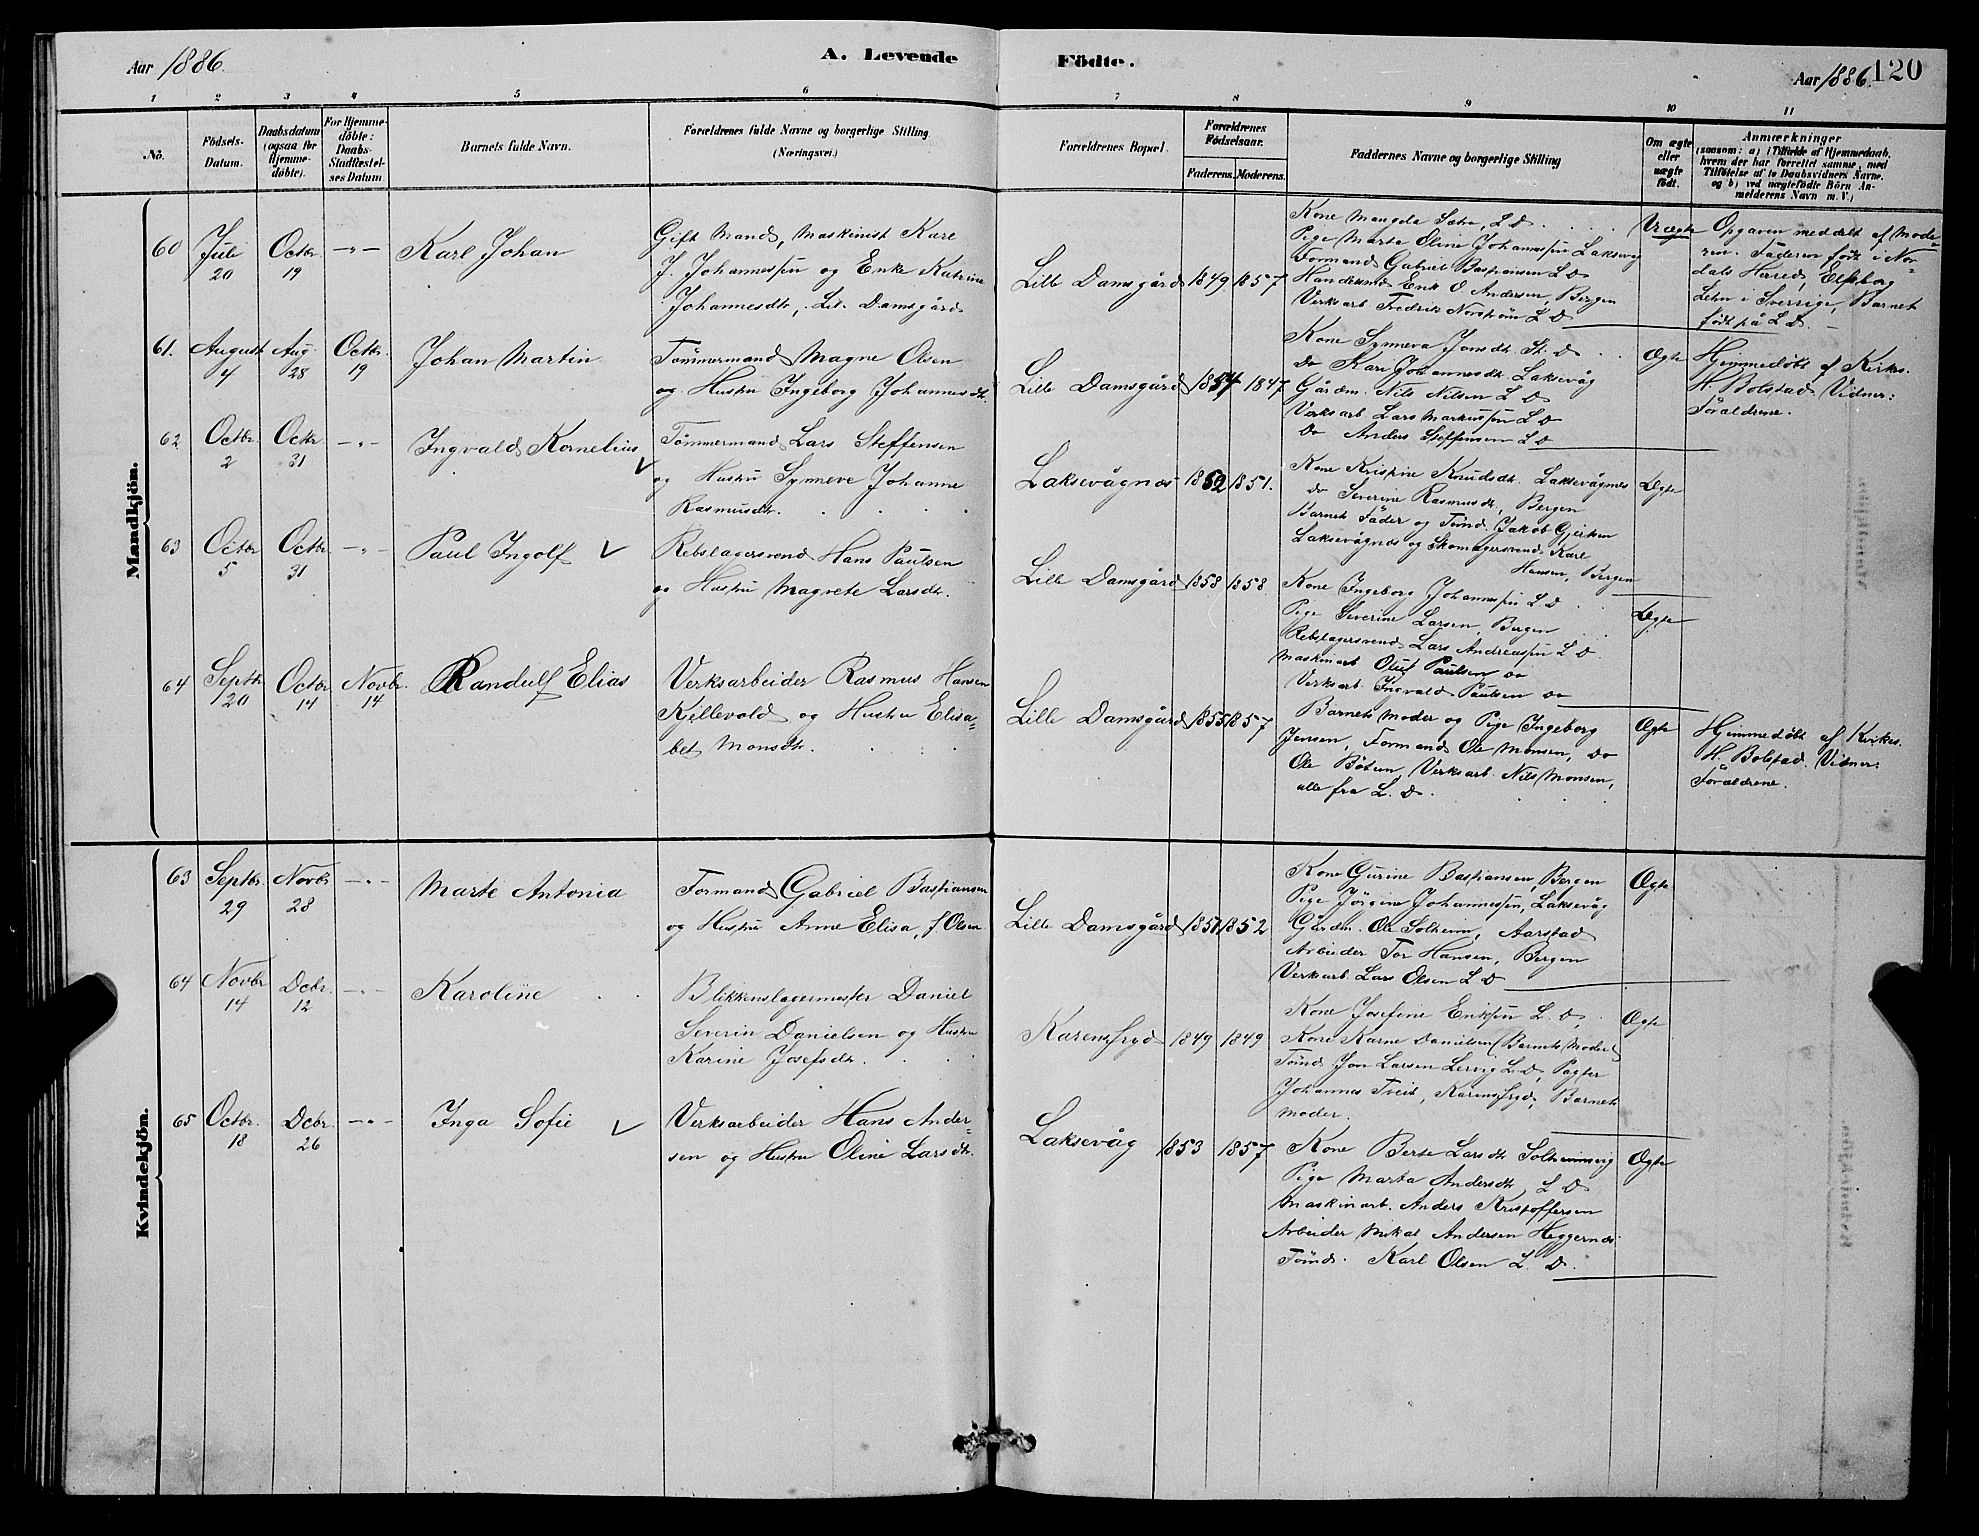 Aar 1886.
A. Levende Födte.
Aar 1886. 120
1 2 3 4 5 6 7 8 9 10 11
No.
Födsels-
Datum.
Daabsdatum
(ogsaa for
Hjemme-
döbte).
For Hjemme-
döbte:
Daabs-
Stadfæstel-
ses Datum.
Barnets fulde Navn.
Forældrenes fulde Navne og borgerlige Stilling.
(Næringsvei.)
Forældrenes Bopæl.
Forældrenes
Födselsaar.
Faderens. Moderens.
Faddernes Navne og borgerlige Stilling
Om ægte
eller
uægte
födt.
Anmærkninger
(saasom: a) i Tilfælde af Hjemmedaab,
hvem der har forrettet samme, med
Tilföielse af to Daabsvidners Navne.
og b) ved uægtefödte Börn An-
melderens Navn m. V.)
Mandkjön.
60 Juli 20 Octbr. 19 -"- Karl Johan
Gift Mand, Maskinist Karl
J. Johannessen og Enke Katrine
Johannesdtr., Lil. Damsgård
Lille Damsgård 1849 1857
Kone Magda Sæter, L D
Pige Marta Oline Johannessen Laksevåg
Formand Gabriel Bastiansen L D
Handelsmd Erik O Andersen, Bergen
Verksarb Fredrik Norstrøm L D
Uægte
Opgaven meddelt af Mode-
ren. Faderen født i Nor-
dals Herred, Elfsborg
Lehn i Sverrige, Barnet
født på L D.
61. August 4 Aug. 28 Octbr. 19 Johan Martin
Tømmermand Magne Olsen
og Hustru Ingeborg Johannesdtr.
Lille Damsgård 1854 1847
Kone Synneva Jonsdtr St. D
Do Kari Johannesdtr. Laksevåg
Gårdm. Nils Nilsen L D
Verksarb Lars Markussen L D
Do Anders Steffensen L D
Ægte
Hjemmedøbt af Kirkes.
H. Bolstad. Vidner:
Forældrene.
62 Octbr. 2 Octbr. 31 -"- Ingvald Kornelius
Tømmermand Lars Steffensen
og Hustru Synneve Johanne
Rasmusdtr.
Laksevågnæs 1852 1851.
Kone Kristine Knudsdtr. Laksevågnes
do Severine Rasmusdtr, Bergen
Barnets Fader og Tømd. Jakob Gjerken
Laksevågnæs og Skomagersvend Karl
Hansen, Bergen
Ægte
63 Octbr 5 Octbr 31 -"- Paul Ingolf
Rebslagersvend Hans Paulsen
og Hustru Magrete Larsdtr.
Lille Damsgård 1858 1858
Kone Ingeborg Johannessen L D
Pige Severine Larsen, Bergen
Rebslagersvend Lars Andreassen L D
Maskinarb Oluf Paulsen do
Verksarb. Ingvald Paulsen do
Ægte
64 Septbr 20 Octbr 14 Novbr. 14 Randulf Elias
Verksarbeider Rasmus Hansen
Killevold og Hustru Elisa-
bet Monsdtr.
Lille Damsgård 1855 1857
Barnets Moder og Pige Ingeborg
Jensen, Formand Ole Monsen, Do
Ole Bøtun, Verksarb. Nils Monsen,
alle fra L. D.
Ægte
Hjemmedøbt af Kirkes.
H. Bolstad. Vidner:
Forældrene.
Kvindekjön.
63 Septbr. 29 Novbr 28 -"- Marte Antonia
Formand Gabriel Bastiansen
og Hustru Anne Elisa, f. Olsen
Lille Damsgård 1851 1852
Kone Gurine Bastiansen, Bergen
Pige Jørgine Johannessen, Laksevåg
Gårdm. Ole Solheim, Aarstad
Arbeider Tor Hansen, Bergen
Verksarb. Lars Olsen L D
Ægte
64 Novbr 14 Dcbr. 12 -"- Karoline
Blikkenslagermester Daniel
Severin Danielsen og Hustru
Karine Josefsdtr.
Karensfryd 1849 1849
Kone Josefine Eriksen L. D.
Kone Karne Danielsen (Barnets Moder)
Tømd Jon Larsen Lervig L D, Pagter
Johannes Tveit, Karensfryd, Barnets
Moder.
Ægte
65 Octbr. 18 Dcbr. 26 -"- Inga Sofie
Verksarbeider Hans Ander-
sen og Hustru Oline Larsdtr.
Laksevåg 1853 1857
Kone Berte Larsdtr Solheimsvig
Pige Marta Andersdtr L D
Maskinarb. Anders Kristoffersen
Arbeider Mikal Andersen Heggernæs
Tømd. Karl Olsen L. D.
Ægte